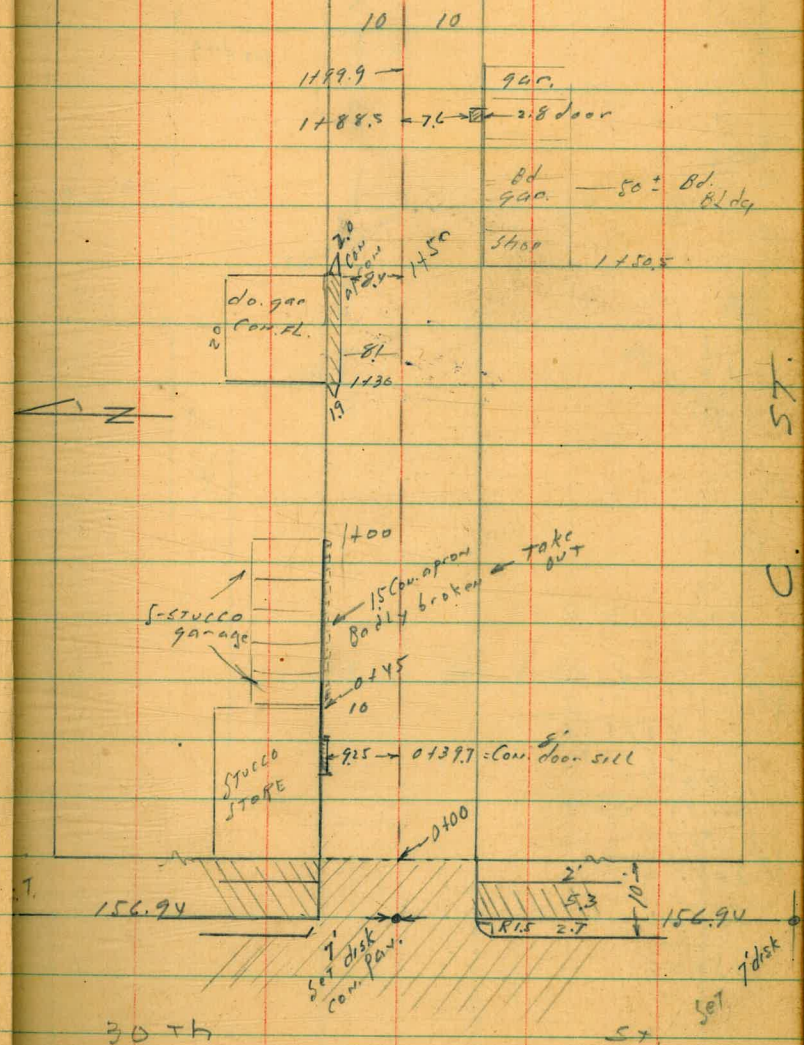 10 10
1+99.9
gar.
1+88.5 7.6 2.8 door
Bd
gar.
50 ± Bd.
Bldg
Shop
1+50.5
2.0
Con
apron
8.4
1+50
do. gar
Con. FL.
20
8.1
1+30
1.9
N
C. ST.
1+00
1.5 Con. apron
Badly broken
Take
out
5-STUCCO
garage
0+45
10
9.25 0+39.7 = Con. door sill
8'
STUCCO
STORE
0+00
2'
5.3
10
T.
156.94
156.94
R 1.5 2.7
7' disk
Set
7'
Set disk
Con. Pav.
30 Th St